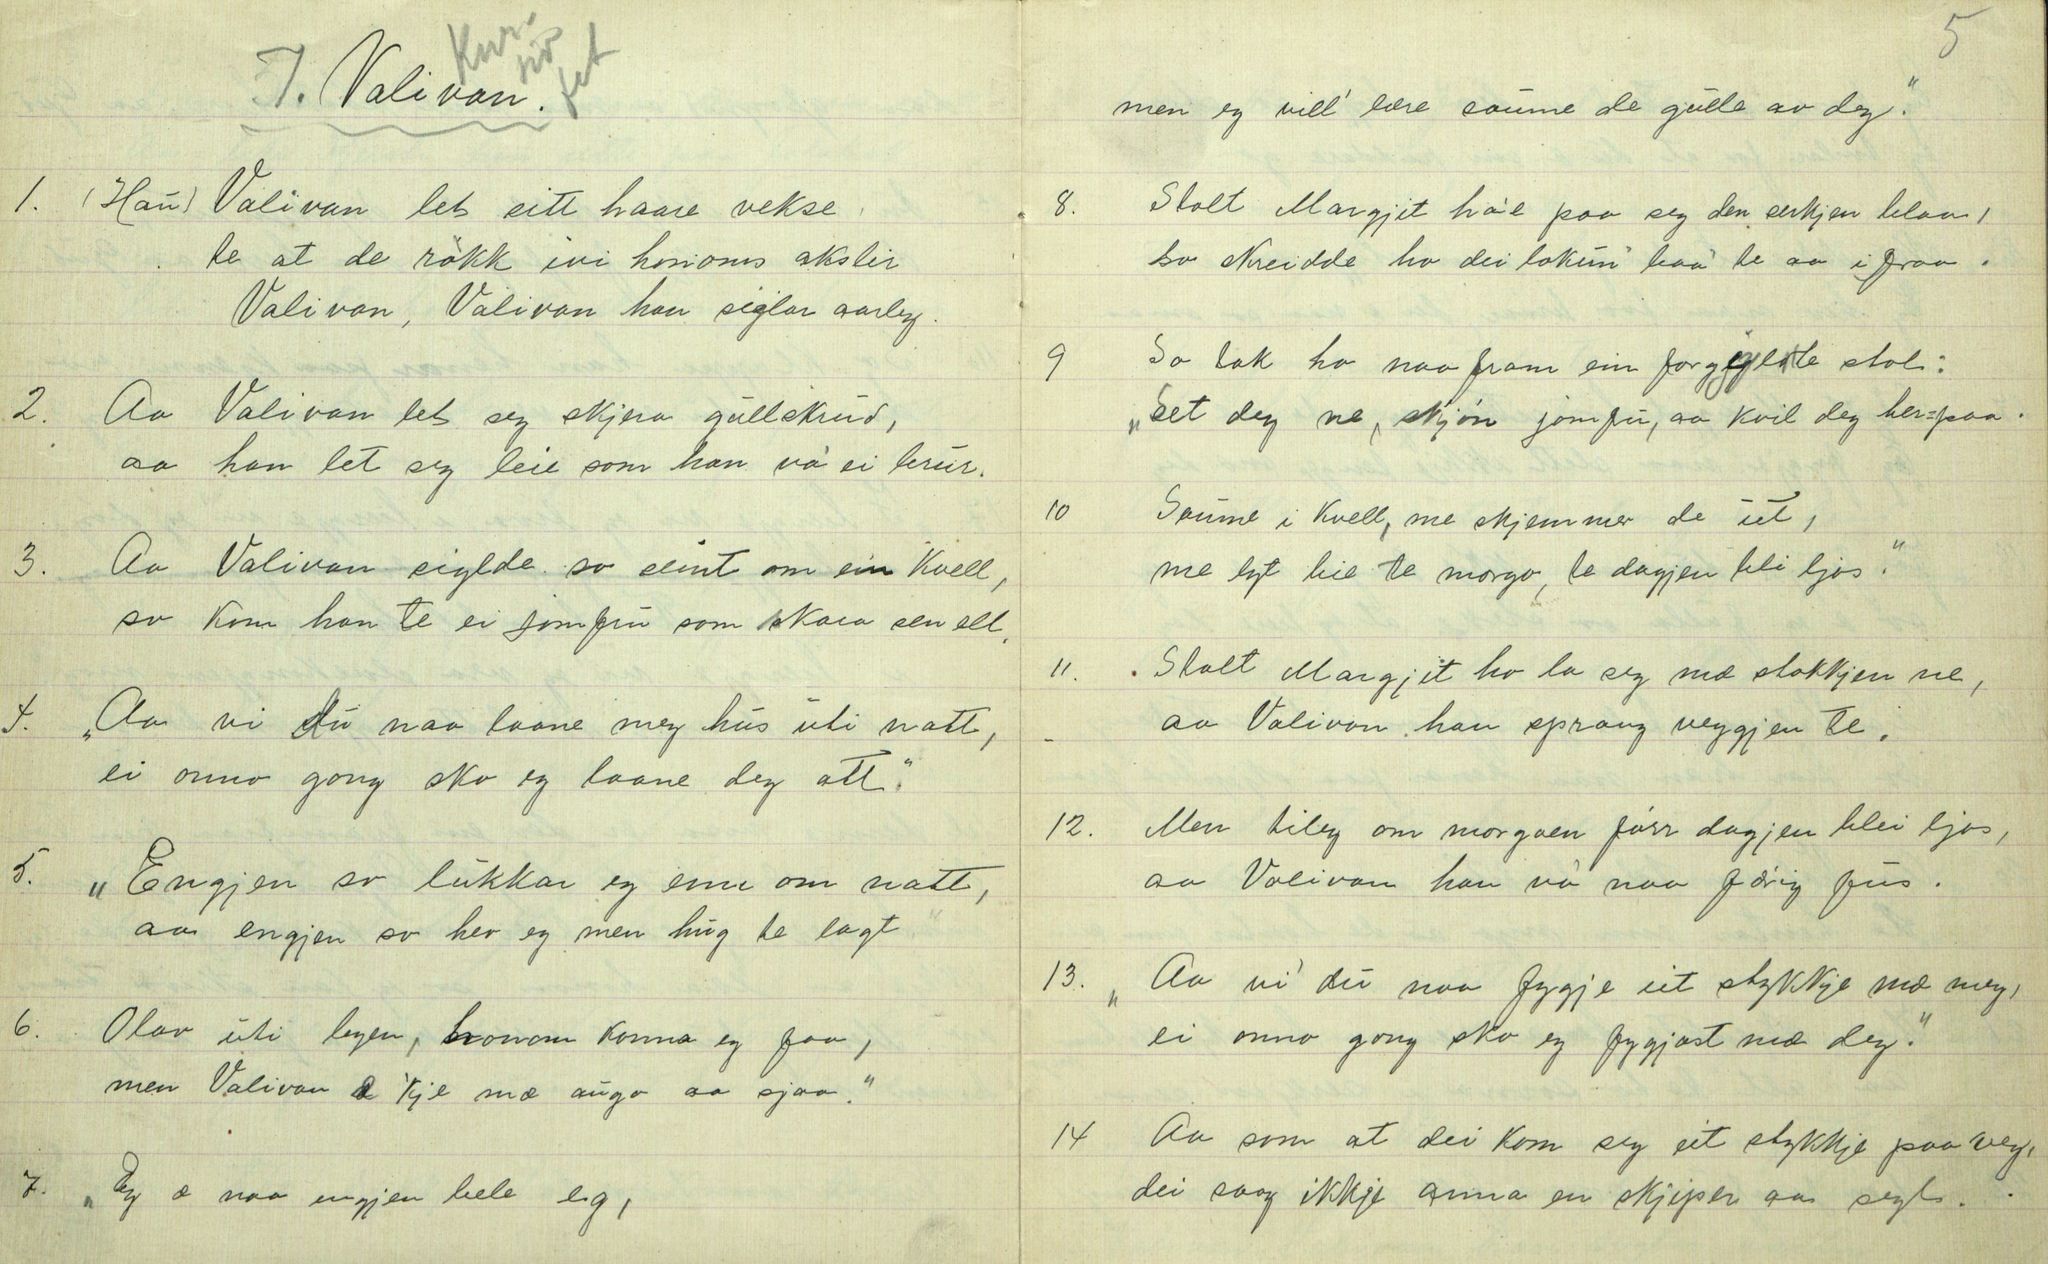 7. Valivan.
Kur-
siv
fet
1. (Han) Valivan let sitt haare vekse,
te at de rökk ivi honoms akslir
Valivan, Valivan han siglar aarleg.
2. Aa Valivan let seg skjera gullskrud,
aa han let seg leie som han va' ei brur.
3. Aa Valivan siglde so seint om ein kvell,
so kom han te ei jomfru som skara sen ell.
4. „Aa vi du naa laane meg hus uti natt,
ei onno gong sko eg laane deg att."
5. „Engjen so lukkar eg inn om natt,
aa engjen so hev eg men hug te lagt
6. Olav uti legen, honom konna eg faa,
men Valivan æ 'kje mæ augo aa sjaa."
7. „Eg æ naa engjen bele eg,
5
men eg vill' lære saume de gulle av deg."
8. Stolt Margjit ha'e paa seg den serkjen blaa,
so skreidde ho dei lakun' baa' te aa ifraa.
9 So tok ho naa fram ein forgyldte stol:
„Set deg ne, skjön jomfru, aa kvil deg her=paa.
10 Saume i kvell, me skjemmer de ut,
me lyt bie te morgo, te dagjen bli ljos."
11. Stolt Margjit ho la seg mæ stokkjen ne,
aa Valivan han sprang veggjen te.
12. Men tileg om morgaen förr dagjen blei ljos,
aa Valivan han va' naa færig fus.
13. „Aa vi' du naa fygje eit stykkje mæ meg,
ei onno gong sko eg fygjast mæ deg."
14 Aa som at dei kom seg eit stykkje paa veg,
dei saag ikkje anna en skjiper aa segl.